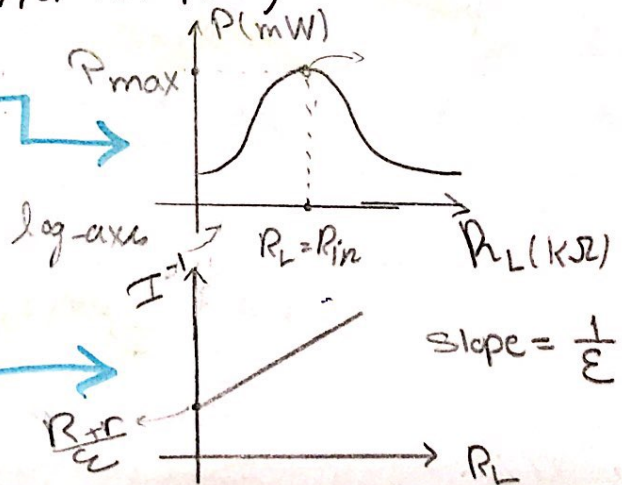 P(mW)
Pmax
log-axis
R_L = R_in
R_L (kΩ)
I⁻¹
slope = 1/ε
R+r/ε
R_L